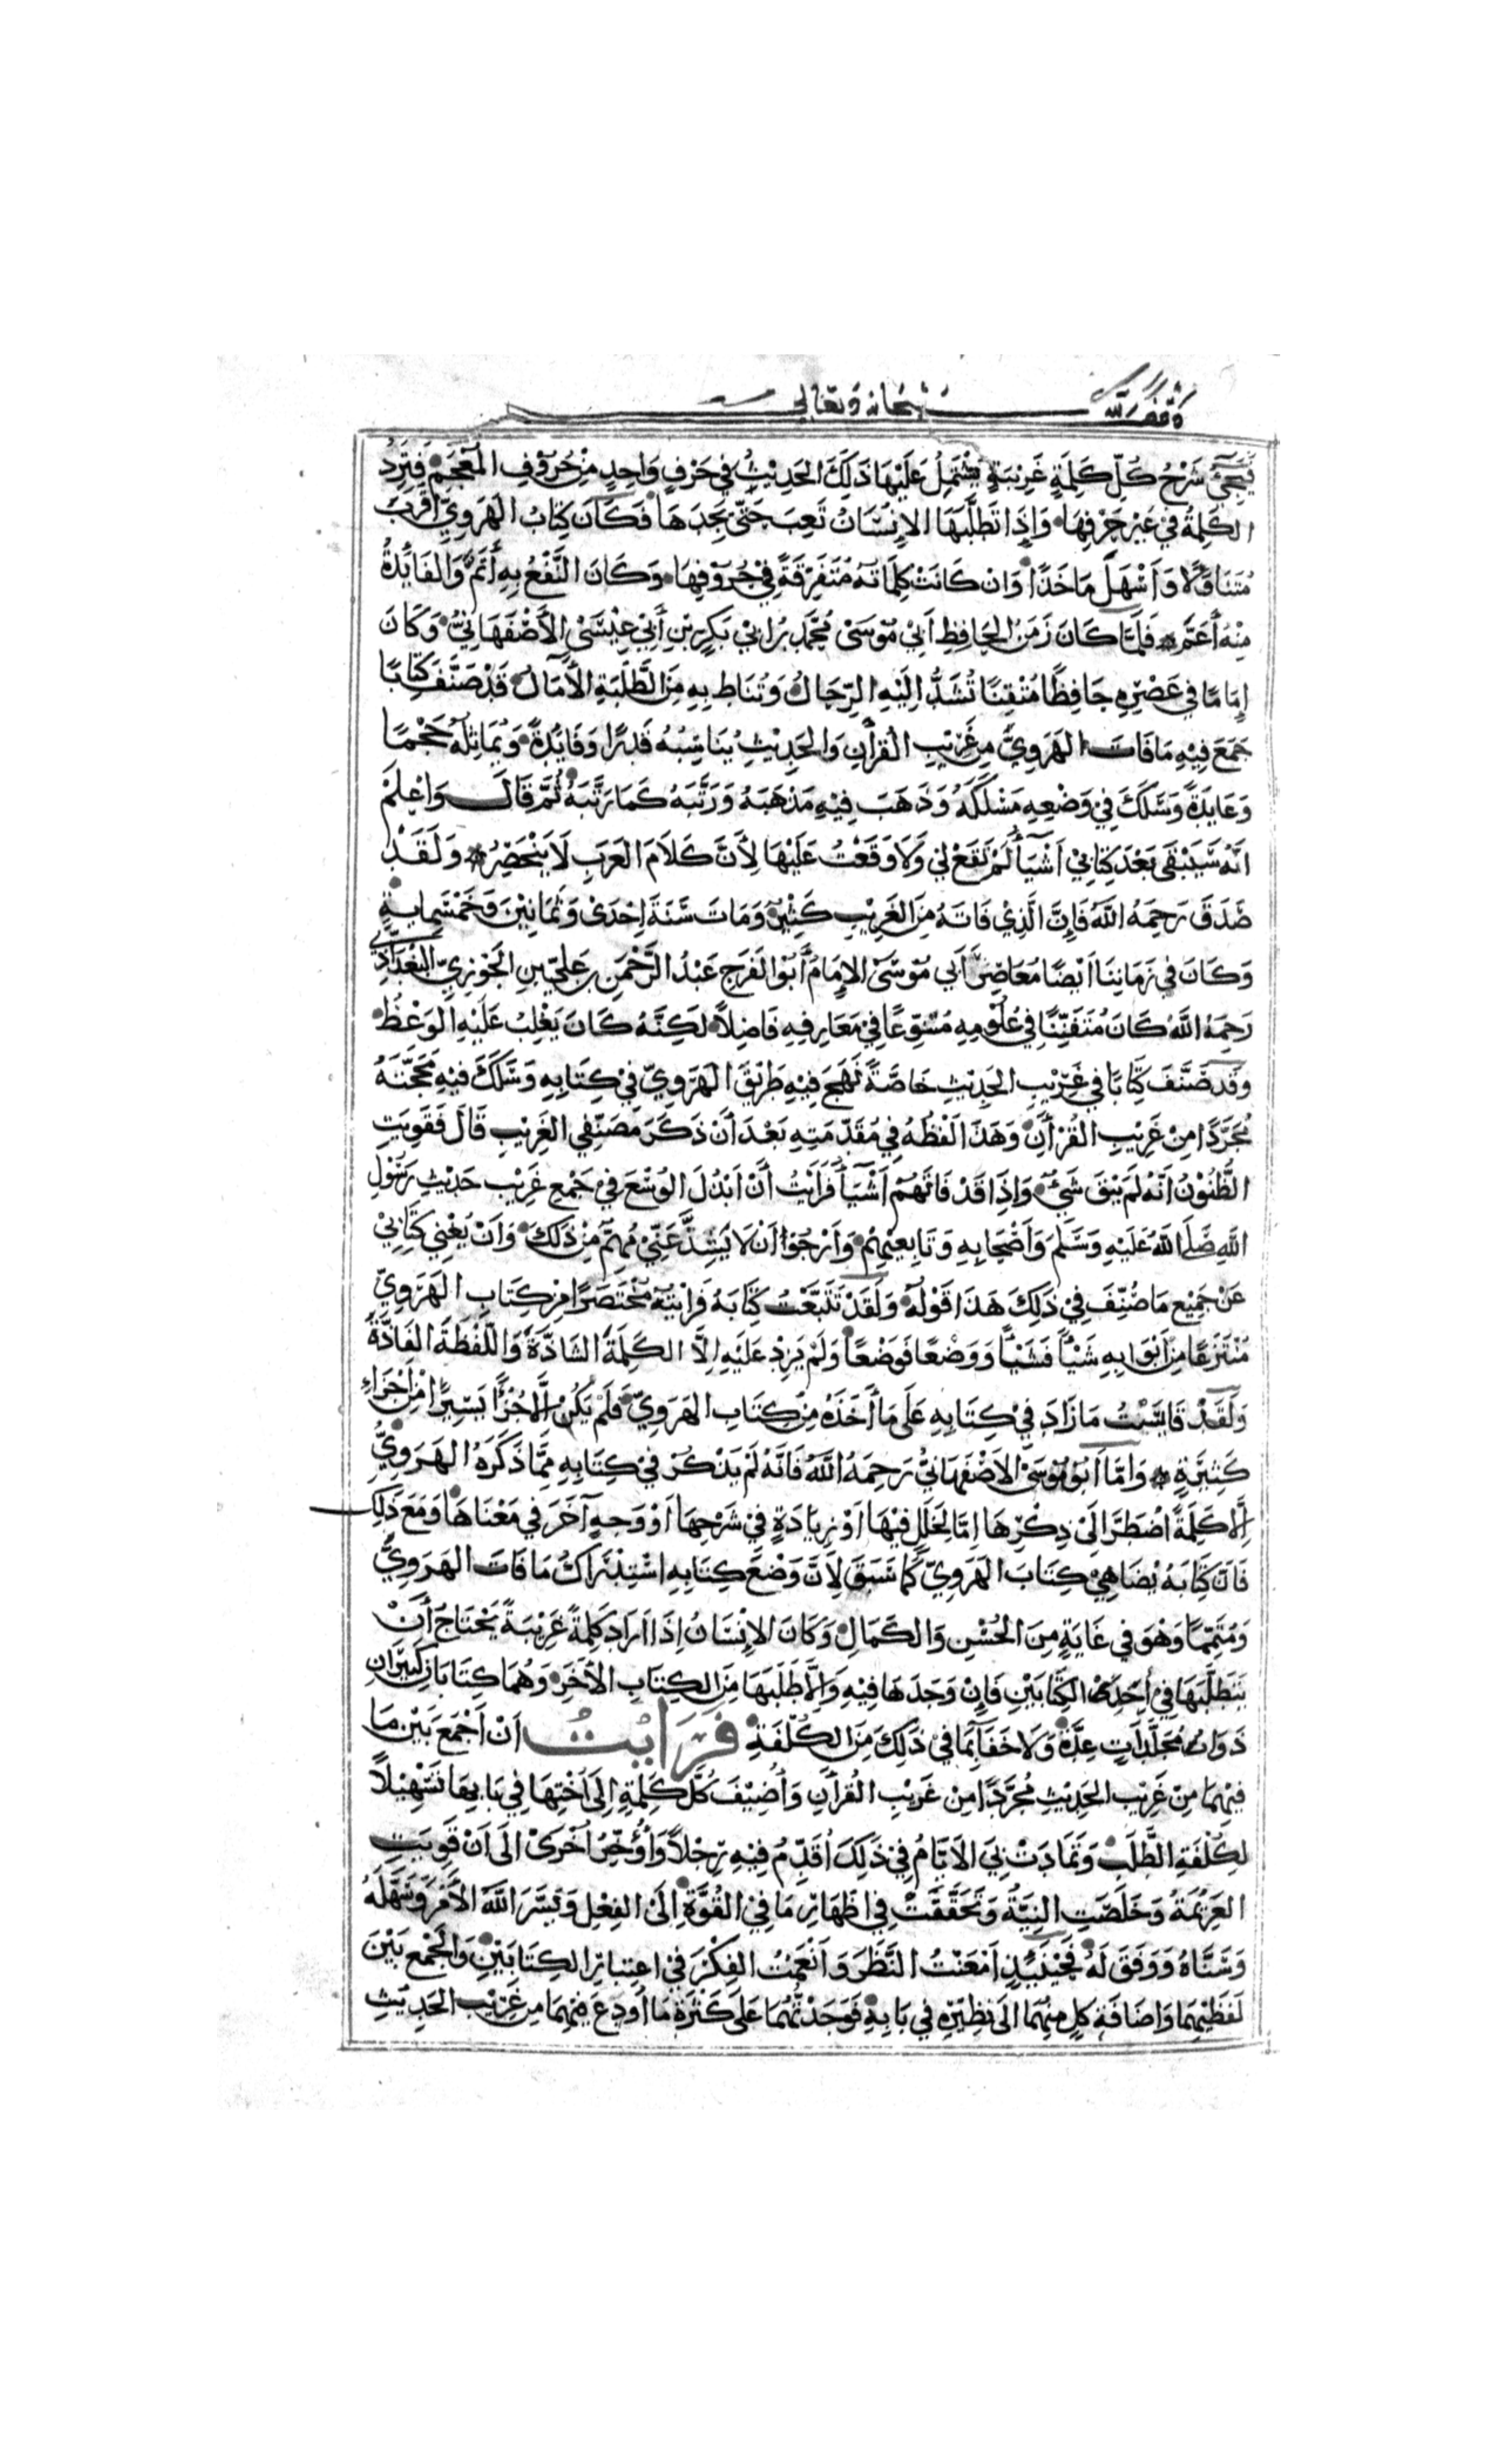 وقف لله سبحانه وتعالى
فَيَجِيْ شَرْحُ كُلِّ كَلِمَةٍ غَرِيْبَةٍ يَشْتَمِلُ عَلَيْهَا ذَلِكَ الحَدِيْثُ فِي حَرْفٍ وَاحِدٍ مِنْ حُرُوْفِ المُعْجَمِ فَتَرِدُ
الكَلِمَةُ فِي غَيْرِ حَرْفِهَا وَإِذَا تَطَلَّبَهَا الإِنْسَانُ تَعِبَ حَتَّى يَجِدَهَا فَكَانَ كِتَابُ الهَرَوِيِّ أَقْرَبَ
مُتَنَاوَلًا وَأَسْهَلَ مَاخَذًا وَانْ كَانَتْ كَلِمَاتُهُ مُتَفَرِّقَةً فِي حُرُوْفِهَا وَكَانَ النَّفْعُ بِهِ أَتَمَّ وَالفَائِدَةُ
مِنْهُ أَعَمَّ فَلَمَّا كَانَ زَمَنُ الحَافِظِ أَبِيْ مُوْسَىْ مُحَمَّدِ بْنِ ابِيْ بَكْرِ بْنِ أَبِيْ عِيْسَىْ الأَصْفَهَانِيِّ وَكَانَ
إِمَامًا فِي عَصْرِهِ حَافِظًا مُتْقِنًا تُشَدُّ اِلَيْهِ الرِّحَالُ وَتُنَاطُ بِهِ مِنَ الطَّلَبَةِ الآمَالُ قَدْ صَنَّفَ كِتَابًا
جَمَعَ فِيْهِ مَا فَاتَ الهَرَوِيَّ مِنْ غَرِيْبِ القُرْآنِ وَالحَدِيْثِ يُنَاسِبُهُ قَدْرًا وَفَائِدَةً وَيُمَاثِلُهُ حَجْمًا
وَعَايِدَةً وَسَلَكَ فِيْ وَضْعِهِ مَسْلَكَهُ وَذَهَبَ فِيْهِ مَذْهَبَهُ وَرَتَّبَهُ كَمَا رَتَّبَهُ ثُمَّ قَالَ وَاعْلَمْ
انَّهُ سَيَبْقَى بَعْدَ كِتَابِيْ اَشْيَآءُ لَمْ تَقَعْ لِيْ وَلَا وَقَفْتُ عَلَيْهَا لِأَنَّ كَلَامَ العَرَبِ لَا يَنْحَصِرُ وَلَقَدْ
صَدَقَ رَحِمَهُ اللَّهُ فَإِنَّ الَّذِيْ فَاتَهُ مِنَ الغَرِيْبِ كَثِيْرٌ وَمَاتَ سَنَةَ اِحْدَىْ وَثَمَانِيْنَ وَخَمْسِمِايَةٍ
وَكَانَ فِي زَمَانِنَا ايْضًا مُعَاصِرَ أَبِي مُوْسَىْ الإِمَامُ أَبُوْ الفَرَجِ عَبْدُ الرَّحْمَنِ بنِ عَلِيِّ بنِ الجَوْزِيِّ البَغْدَادِيُّ
رَحِمَهُ اللَّهُ كَانَ مُتَفَنِّنًا فِي عُلُوْمِهِ مُتَنَوِّعًا فِيْ مَعَارِفِهِ فَاضِلًا لَكِنَّهُ كَانَ يَغْلِبُ عَلَيْهِ الوَعْظُ
وَقَدْ صَنَّفَ كِتَابًا فِي غَرِيْبِ الحَدِيْثِ خَاصَّةً نَهَجَ فِيْهِ طَرِيْقَ الهَرَوِيِّ فِيْ كِتَابِهِ وَسَلَكَ فِيْهِ مَحَجَّتَهُ
مُجَرَّدًا مِنْ غَرِيْبِ القُرْآنِ وَهَذَا لَفْظُهُ فِي مُقَدِّمَتِهِ بَعْدَ أَنْ ذَكَرَ مُصَنِّفِي الغَرِيْبِ قَالَ فَقَوِيَتِ
الظُّنُوْنُ اَنَّهُ لَمْ يَبْقَ شَيْءٌ وَإِذَا قَدْ فَاتَهُمْ اَشْيَآءُ فَرَأَيْتُ أَنْ اَبْذُلَ الوُسْعَ فِيْ جَمْعِ غَرِيْبِ حَدِيْثِ رَسُوْلِ
اللَّهِ صَلَّى اللَّهُ عَلَيْهِ وَسَلَّمَ وَأَصْحَابِهِ وَتَابِعِيْهِمْ وَأَرْجُوْا أَنْ لَا يَشِذَّ عَنِّيْ مُهِمٌّ مِنْ ذَلِكَ وَاَنْ يُغْنِيَ كِتَابِيْ
عَنْ جَمِيْعِ مَا صُنِّفَ فِيْ ذَلِكَ هَذَا قَوْلُهُ وَلَقَدْ تَتَبَّعْتُ كِتَابَهُ فَرَايْتُهُ مُخْتَصَرًا مِنْ كِتَابِ الهَرَوِيِّ
مُنْتَزَعًا مِنْ أَبْوَابِهِ شَيْئًا فَشَيْئًا وَوَضْعًا فَوَضْعًا وَلَمْ يَزِدْ عَلَيْهِ اِلَّا الكَلِمَةَ الشَّاذَّةَ وَاللَّفْظَةَ الفَاذَّةَ
وَلَقَدْ قَايَسْتُ مَا زَادَ فِيْ كِتَابِهِ عَلَى مَا أَخَذَهُ مِنْ كِتَابِ الهَرَوِيِّ فَلَمْ يَكُنْ اِلَّا جُزْءًا يَسِيْرًا مِنْ أَجْزَاءٍ
كَثِيْرَةٍ وَامَّا اَبُوْ مُوْسَىْ الاَصْفَهَانِيُّ رَحِمَهُ اللَّهُ فَانَّهُ لَمْ يَذْكُرْ فِيْ كِتَابِهِ مِمَّا ذَكَرَهُ الهَرَوِيُّ
اِلَّا كَلِمَةً اضْطَرَّ اِلَىْ ذِكْرِهَا اِمَّا لِخَلَلٍ فِيْهَا اَوْ زِيَادَةٍ فِيْ شَرْحِهَا اَوْ وَجْهٍ آخَرَ فِي مَعْنَاهَا وَمَعَ ذَلِكَ
فَانَّ كِتَابَهُ يُضَاهِيْ كِتَابَ الهَرَوِيِّ كَمَا سَبَقَ لِاَنَّ وَضْعَ كِتَابِهِ اسْتِدْرَاكُ مَا فَاتَ الهَرَوِيَّ
وَمُتَمِّمًا وَهُوَ فِي غَايَةٍ مِنَ الحُسْنِ وَالكَمَالِ وَكَانَ الإِنْسَانُ اِذَا اَرَادَ كَلِمَةً غَرِيْبَةً يَحْتَاجُ أَنْ
يَتَطَلَّبَهَا فِيْ أَحَدِ الكِتَابَيْنِ فَإِنْ وَجَدَهَا فِيْهِ وَاِلَّا طَلَبَهَا مِنَ الكِتَابِ الآخَرِ وَهُمَا كِتَابَانِ كَبِيْرَانِ
ذَوَا مُجَلَّدَاتٍ عِدَّةٍ وَلَا خَفَآءَ بِمَا فِيْ ذَلِكَ مِنَ الكُلْفَةِ فَرَايْتُ اَنْ اَجْمَعَ بَيْنَ مَا
فِيْهِمَا مِنْ غَرِيْبِ الحَدِيْثِ مُجَرَّدًا مِنْ غَرِيْبِ القُرْآنِ وَأُضِيْفَ كُلَّ كَلِمَةٍ إِلَى اُخْتِهَا فِيْ بَابِهَا تَسْهِيْلًا
لِكُلْفَةِ الطَّلَبِ وَتَمَادَتْ بِيَ الاَيَّامُ فِيْ ذَلِكَ اُقَدِّمُ فِيْهِ رِجْلًا وَأُؤَخِّرُ اُخْرَىْ اِلَى اَنْ قَوِيَتِ
العَزِيْمَةُ وَخَلَصَتِ النِّيَّةُ وَتَحَقَّقَتْ فِي اظْهَارِ مَا فِيْ القُوَّةِ اِلَىْ الفِعْلِ وَيَسَّرَ اللَّهُ الأَمْرَ وَسَهَّلَهُ
وَسَنَّاهُ وَوَفَّقَ لَهُ فَحِيْنَئِذٍ اَمْعَنْتُ النَّظَرَ وَاَنْعَمْتُ الفِكْرَ فِيْ اعْتِبَارِ الكِتَابَيْنِ وَالجَمْعِ بَيْنَ
لَفْظَيْهِمَا وَاضَافَةِ كُلٍّ مِنْهُمَا اِلَى نَظِيْرِهِ فِي بَابِهِ فَوَجَدْتُهُمَا عَلَى كَثْرَةِ مَا أُوْدِعَ فِيْهِمَا مِنْ غَرِيْبِ الحَدِيْثِ